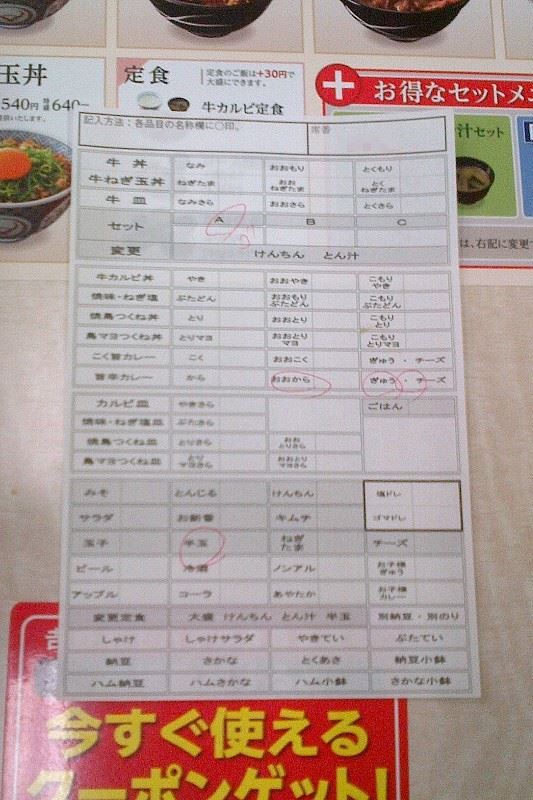 玉丼
定食
定食のご飯は+30円で
大盛にできます。
540円 特盛 640
牛カルビ定食
お得なセットメ
汁セット
記入方法：各品目の名称欄に○印。
席番
牛丼 なみ おおもり とくもり
牛ねぎ玉丼 ねぎたま おおねぎたま とくねぎたま
牛皿 なみさら おおさら とくさら
セット A B C
変更 けんちん とん汁
は、右記に変更で
牛カルビ丼 やき おおやき こもりやき
焼味・ねぎ塩 ぶたどん おおもりぶたどん こもりぶたどん
焼鳥つくね丼 とり おおとり こもりとり
鳥マヨつくね丼 とりマヨ おおとりマヨ こもりとりマヨ
こく旨カレー こく おおこく ぎゅう・チーズ
旨辛カレー から おおから ぎゅう・チーズ
カルビ皿 やきさら ごはん
焼味・ねぎ塩皿 ぶたさら
焼鳥つくね皿 とりさら おおとりさら
鳥マヨつくね皿 とりマヨさら おおとりマヨさら
みそ とんじる けんちん 塩ドレ
サラダ お新香 キムチ ゴマドレ
玉子 半玉 ねぎたま チーズ
ビール 冷酒 ノンアル お子様ぎゅう
アップル コーラ あやたか お子様カレー
変更定食 大盛 けんちん とん汁 半玉 別納豆・別のり
しゃけ しゃけサラダ やきてい ぶたてい
納豆 さかな とくあさ 納豆小鉢
ハム納豆 ハムさかな ハム小鉢 さかな小鉢
今すぐ使える
クーポンゲット!